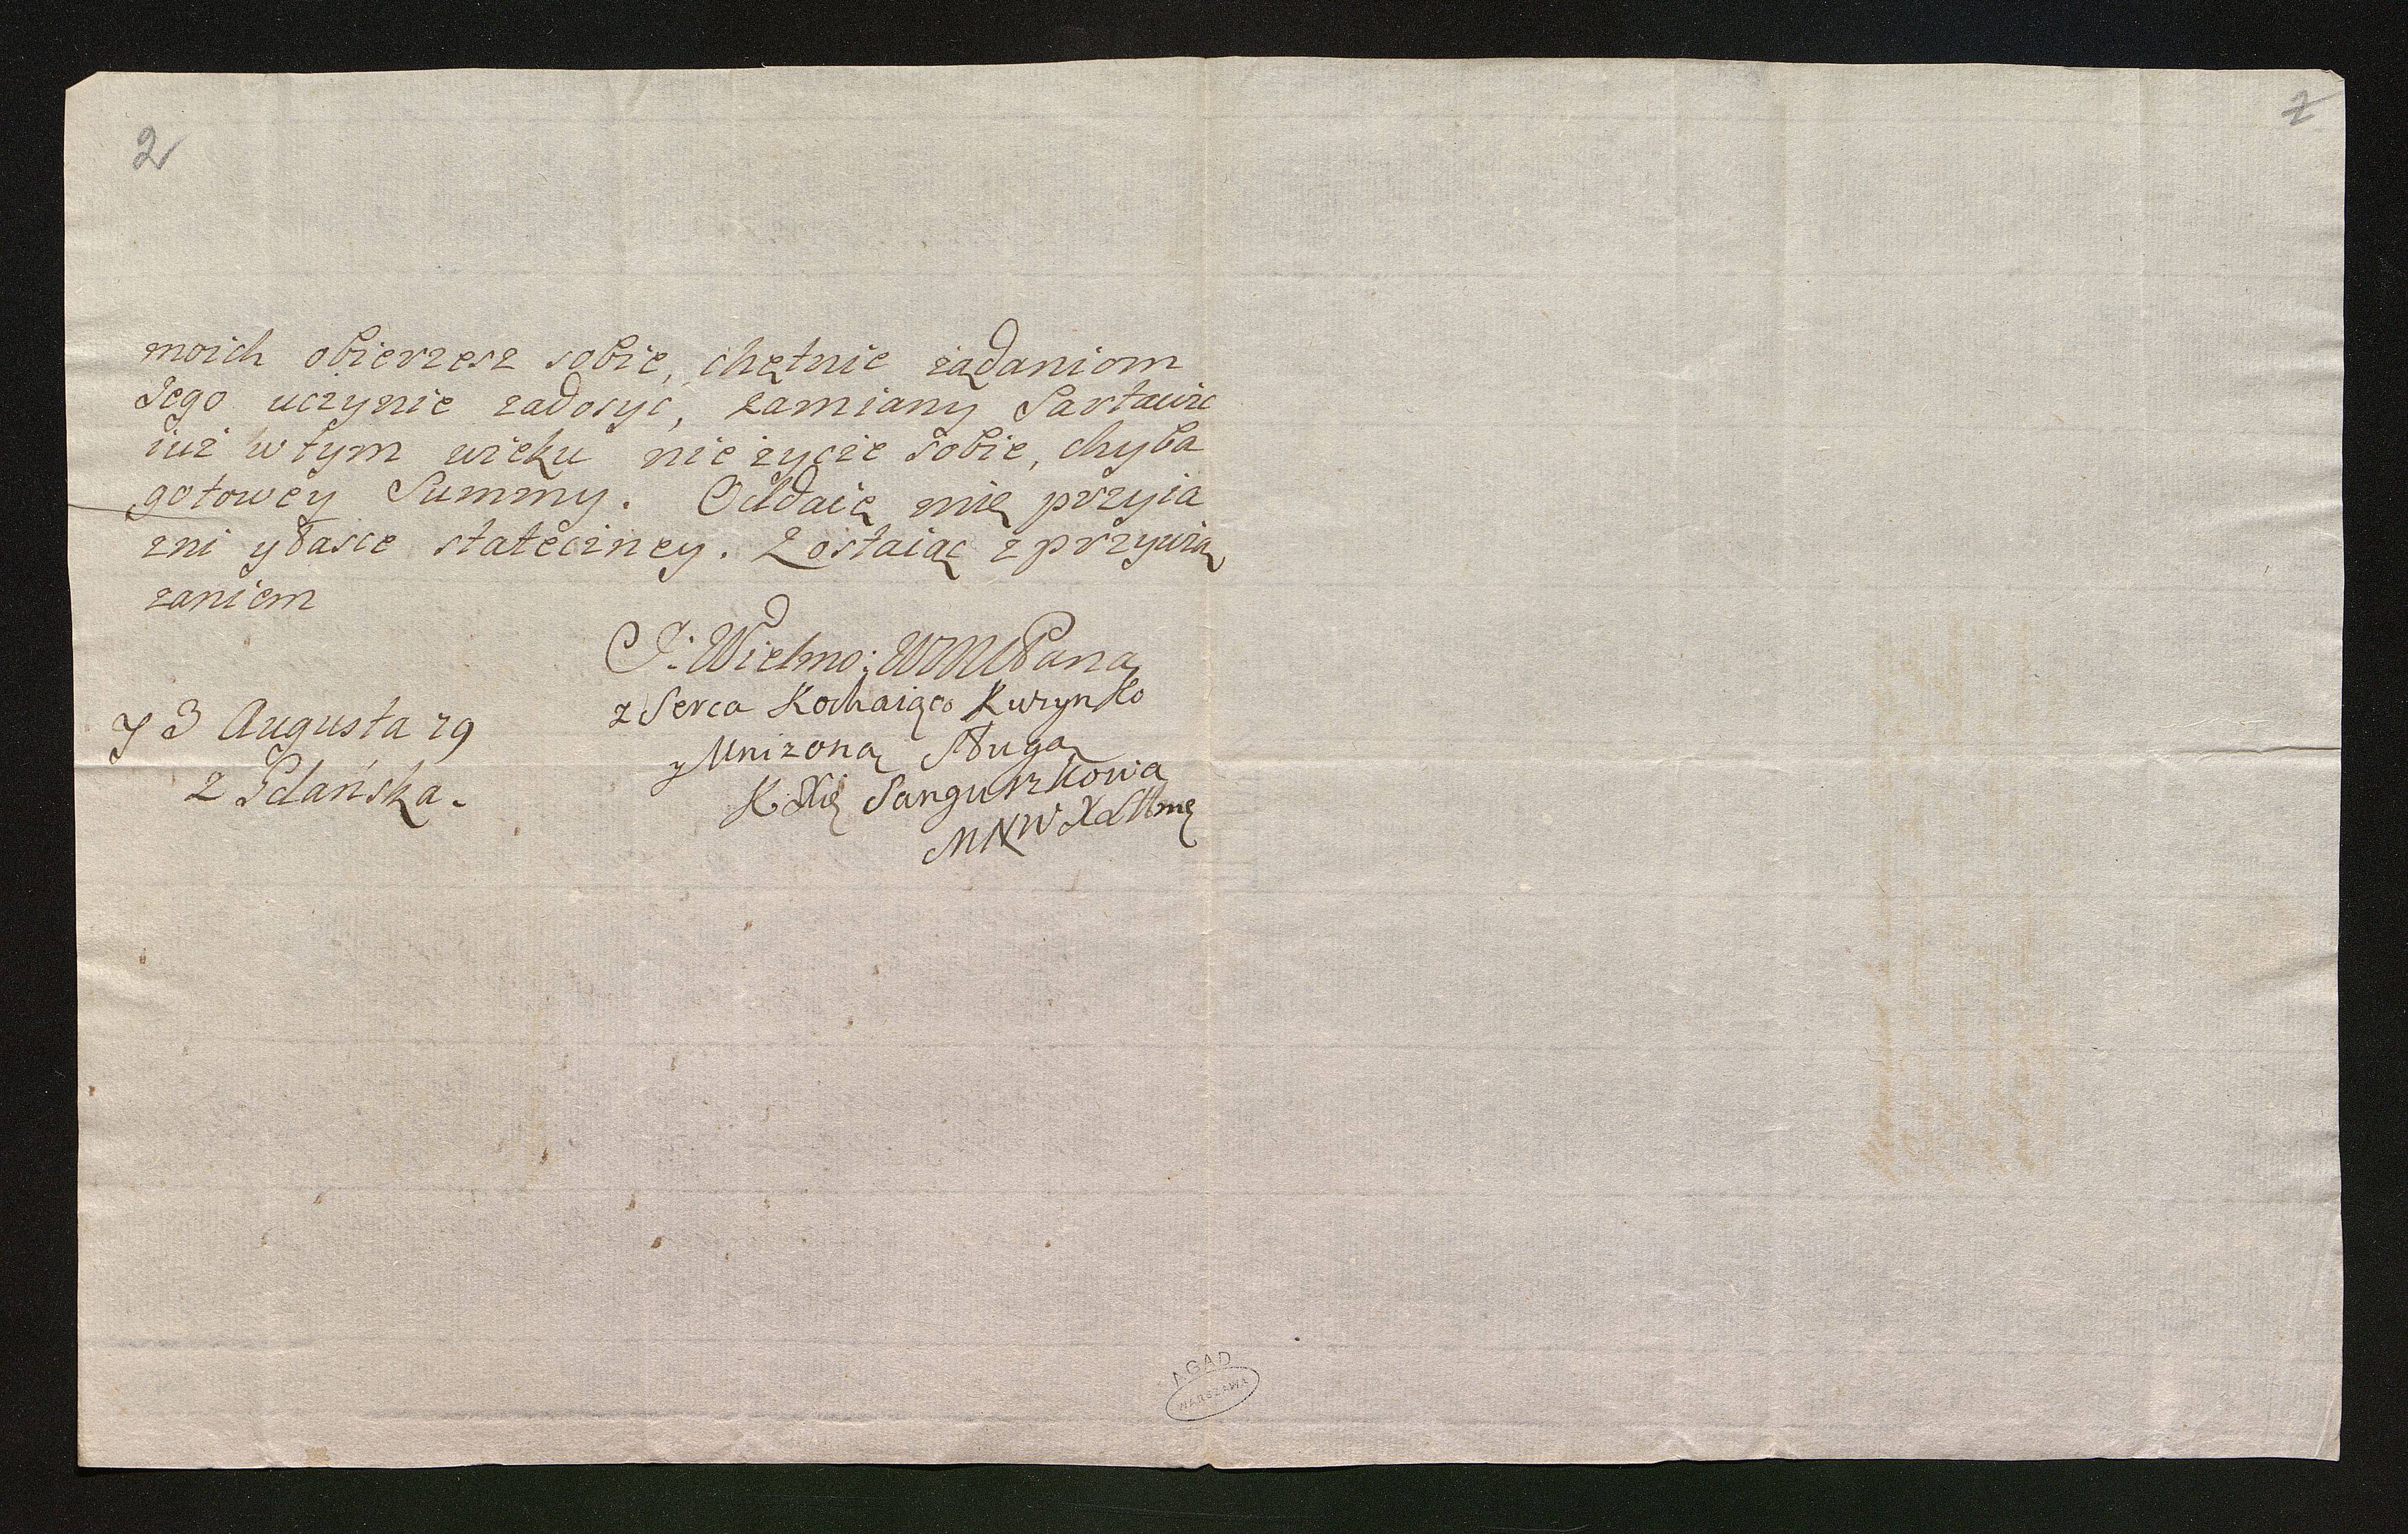 2
2
moich obierzesz sobie, chętnie żądaniom
Jego uczynie zadosyć, zamiany Sartawic
iuż w tym wieku nie życze sobie, chyba
gotowey Summy. Oddaię mię przyia
zni y łasce stateczney. Zostaiąc z przywią
zaniem
J: Wielmo: WMM Pana
z Serca Kochaiąco Kuzynko
y Uniżoną Sługą
K Xię Sanguszkowa
MNWXLttmę
3 Augusta 29
z Gdańska.
AGAD
WARSZAWA